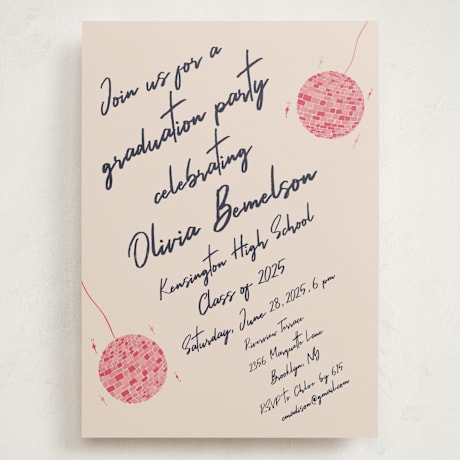 Join us for a
graduation party
celebrating
Olivia Bemelson
Kensington High School
Class of 2025
Saturday, June 28, 2025, 6 pm
Riverview Terrace
2356 Marquette Lane
Brooklyn, NY
RSVP to Chloe by 6.15
cmadison@gmail.com